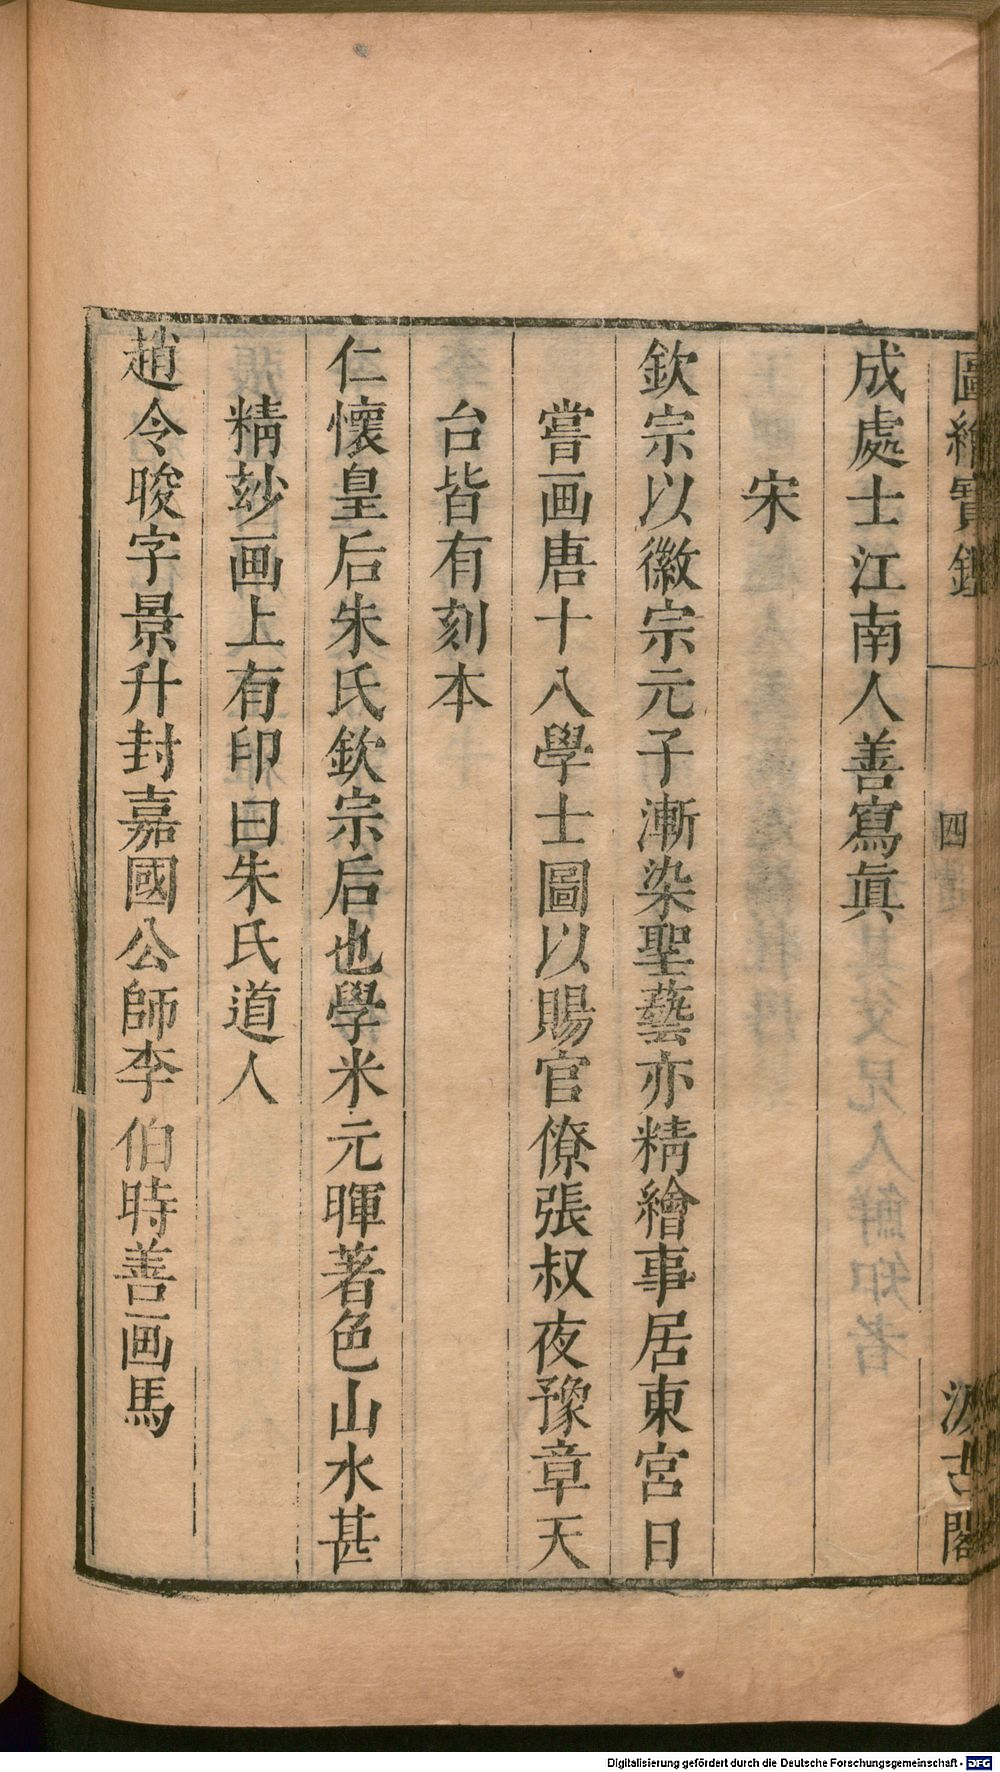 圖繪寶鑑
四
汲古閣
成處士江南人善寫眞
宋
欽宗以徽宗元子漸染聖藝亦精繪事居東宮日
嘗画唐十八學士圖以賜官僚張叔夜豫章天
台皆有刻本
仁懷皇后朱氏欽宗后也學米元暉著色山水甚
精玅画上有印曰朱氏道人
趙令晙字景升封嘉國公師李伯時善画馬
Digitalisierung gefördert durch die Deutsche Forschungsgemeinschaft - DFG